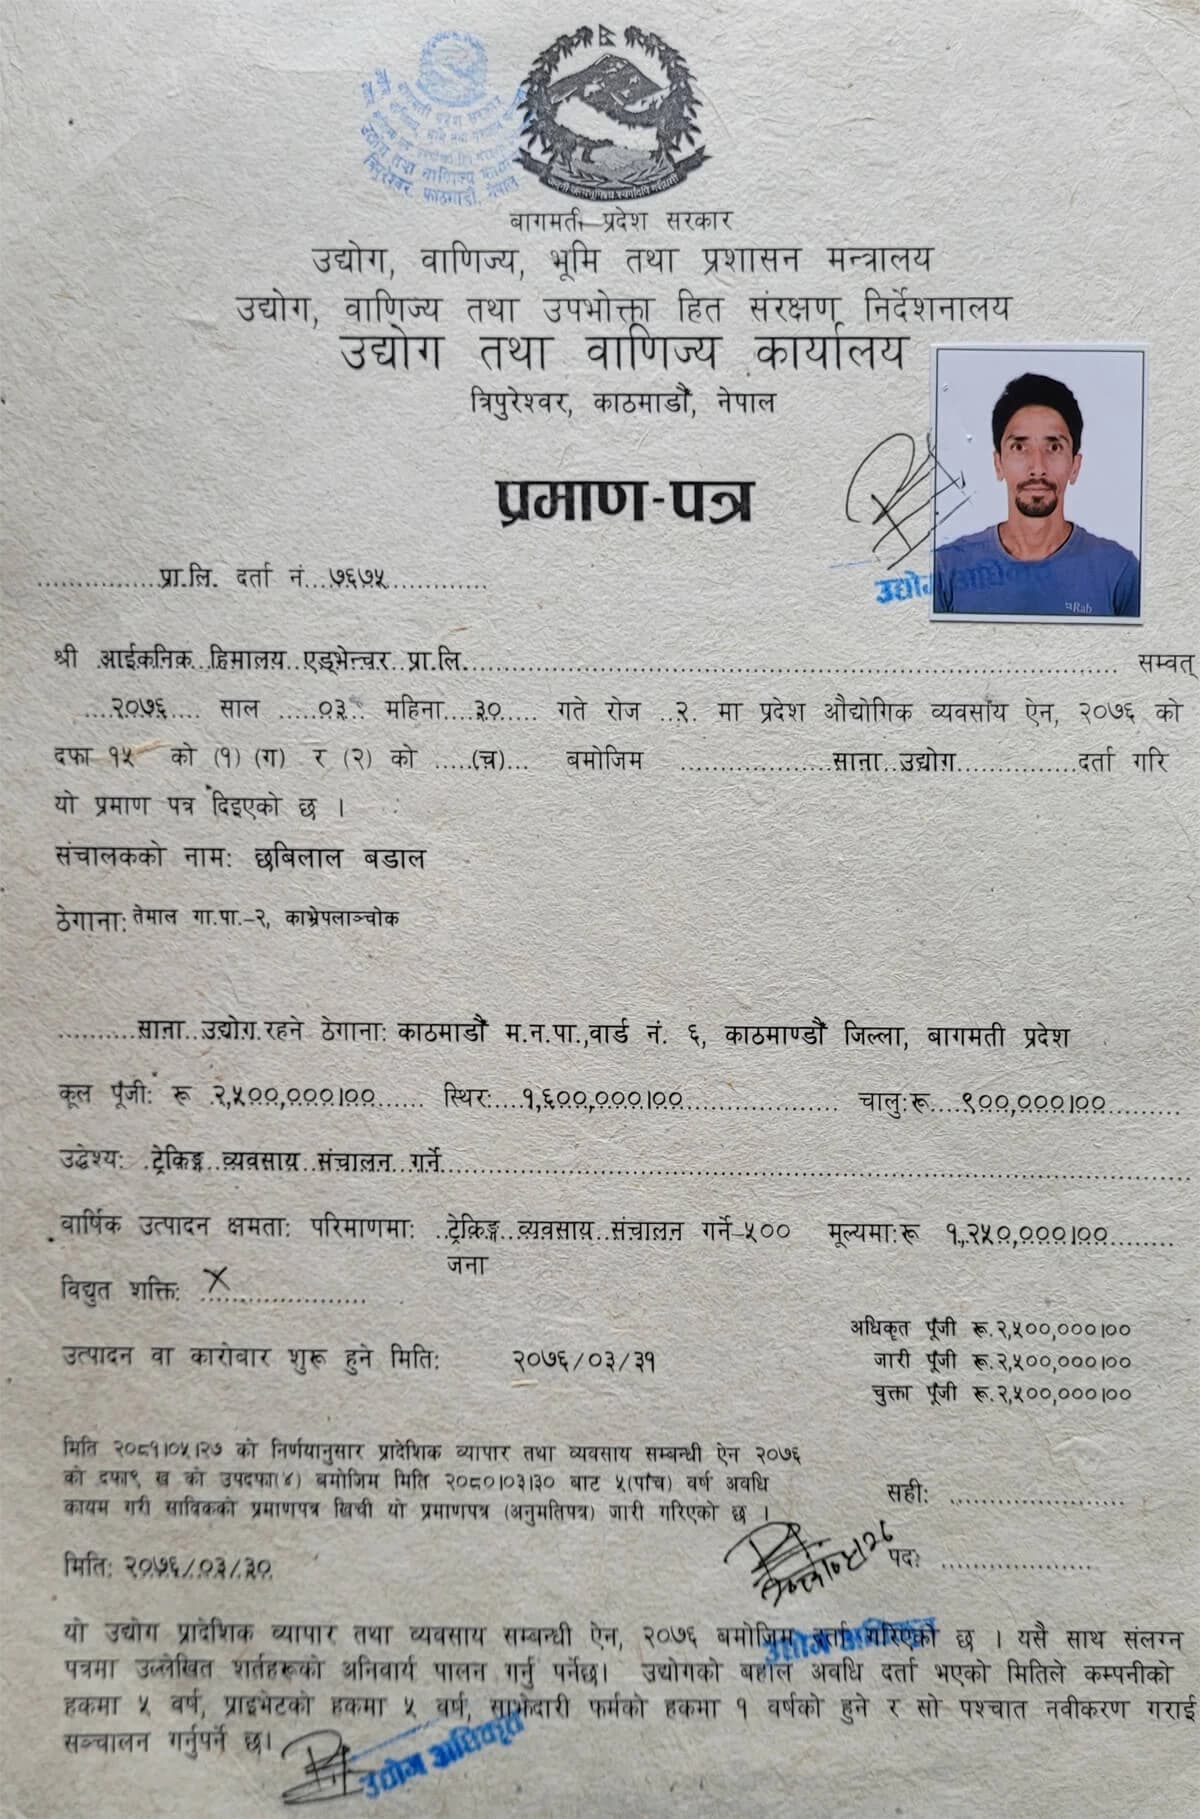 बागमती प्रदेश सरकार
उद्योग, वाणिज्य, भूमि तथा प्रशासन मन्त्रालय
उद्योग, वाणिज्य तथा उपभोक्ता हित संरक्षण निर्देशनालय
उद्योग तथा वाणिज्य कार्यालय
त्रिपुरेश्वर, काठमाडौं, नेपाल
त्रिपुरेश्वर, काठमाडौं, नेपाल
प्रमाण-पत्र
Rab
उद्योग अधिकृत
................प्रा.लि. दर्ता नं...७६७५..............
श्री आईकनिक हिमालय एड्भेन्चर प्रा.लि.................................................... सम्वत्
....२०७६.... साल .....०३.. महिना....३०..... गते रोज ..२. मा प्रदेश औद्योगिक व्यवसाय ऐन, २०७६ को
दफा १५ को (१) (ग) र (२) को .....(च)... बमोजिम ................साना उद्योग.............दर्ता गरि
यो प्रमाण पत्र दिइएको छ ।
संचालकको नाम: छबिलाल बडाल
ठेगाना: तेमाल गा.पा.-२, काभ्रेपलाञ्चोक
..........साना उद्योग रहने ठेगाना: काठमाडौं म.न.पा.,वार्ड नं. ६, काठमाण्डौं जिल्ला, बागमती प्रदेश
कूल पूँजी: रू २,५००,०००।००...... स्थिर:....१,६००,०००।००.................... चालु:रू....९००,०००।००..........
उद्धेश्य: .ट्रेकिङ्ग व्यवसाय संचालन गर्ने................................................
वार्षिक उत्पादन क्षमता: परिमाणमा: ..ट्रेकिङ्ग व्यवसाय संचालन गर्ने-५०० मूल्यमा:रू १,२५०,०००।००........
जना
विद्युत शक्ति: X ....................
अधिकृत पूँजी रू.२,५००,०००।००
उत्पादन वा कारोवार शुरू हुने मिति: २०७६/०३/३१
जारी पूँजी रू.२,५००,०००।००
चुक्ता पूँजी रू.२,५००,०००।००
मिति २०८१।०५।२७ को निर्णयानुसार प्रादेशिक व्यापार तथा व्यवसाय सम्बन्धी ऐन २०७६
को दफा९ ख को उपदफा(४) बमोजिम मिति २०८०।०३।३० बाट ५(पाँच) वर्ष अवधि
कायम गरी साविकको प्रमाणपत्र खिची यो प्रमाणपत्र (अनुमतिपत्र) जारी गरिएको छ ।
सही: ......................
मिति: २०७६/०३/३०
पद: ...................
यो उद्योग प्रादेशिक व्यापार तथा व्यवसाय सम्बन्धी ऐन, २०७६ बमोजिम दर्ता गरिएको छ । यसै साथ संलग्न
उद्योग अधिकृत
पत्रमा उल्लेखित शर्तहरूको अनिवार्य पालन गर्नु पर्नेछ। उद्योगको बहाल अवधि दर्ता भएको मितिले कम्पनीको
हकमा ५ वर्ष, प्राइभेटको हकमा ५ वर्ष, साझेदारी फर्मको हकमा १ वर्षको हुने र सो पश्चात नवीकरण गराई
सञ्चालन गर्नुपर्ने छ।
उद्योग अधिकृत